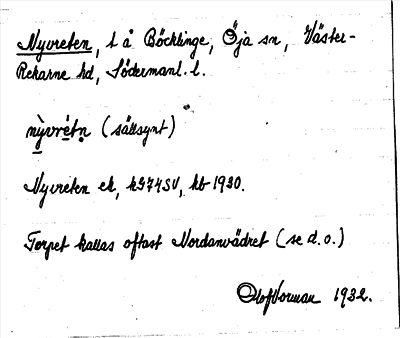 Nyvreten, t å Böcklinge, Öja sn, Väster-
Rekarne hd, Södermanl. l.
nỳvrétn (sällsynt)
Nyvreten ek, kG74SV, kb 1930.
Torpet kallas oftast Nordanvädret (se d.o.)
Olof Norman 1932.